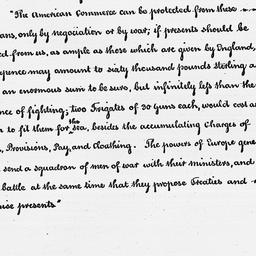 "The American Commerce can be protected from these
ans, only by negociation or by war; if presents should be
ed from us, as ample as those which are given by England,
xpence may amount to sixty thousand pounds sterling a
an enormous sum to be sure, but infinitely less than the
nce of fighting; two Frigates of 30 Guns each, would cost as
h to fit them for the sea, besides the accumulating Charges of
, Provisions, Pay, and Cloathing. The powers of Europe gene
send a squadron of men of war with their ministers, and
battle at the same time that they propose Treaties and
mise presents"